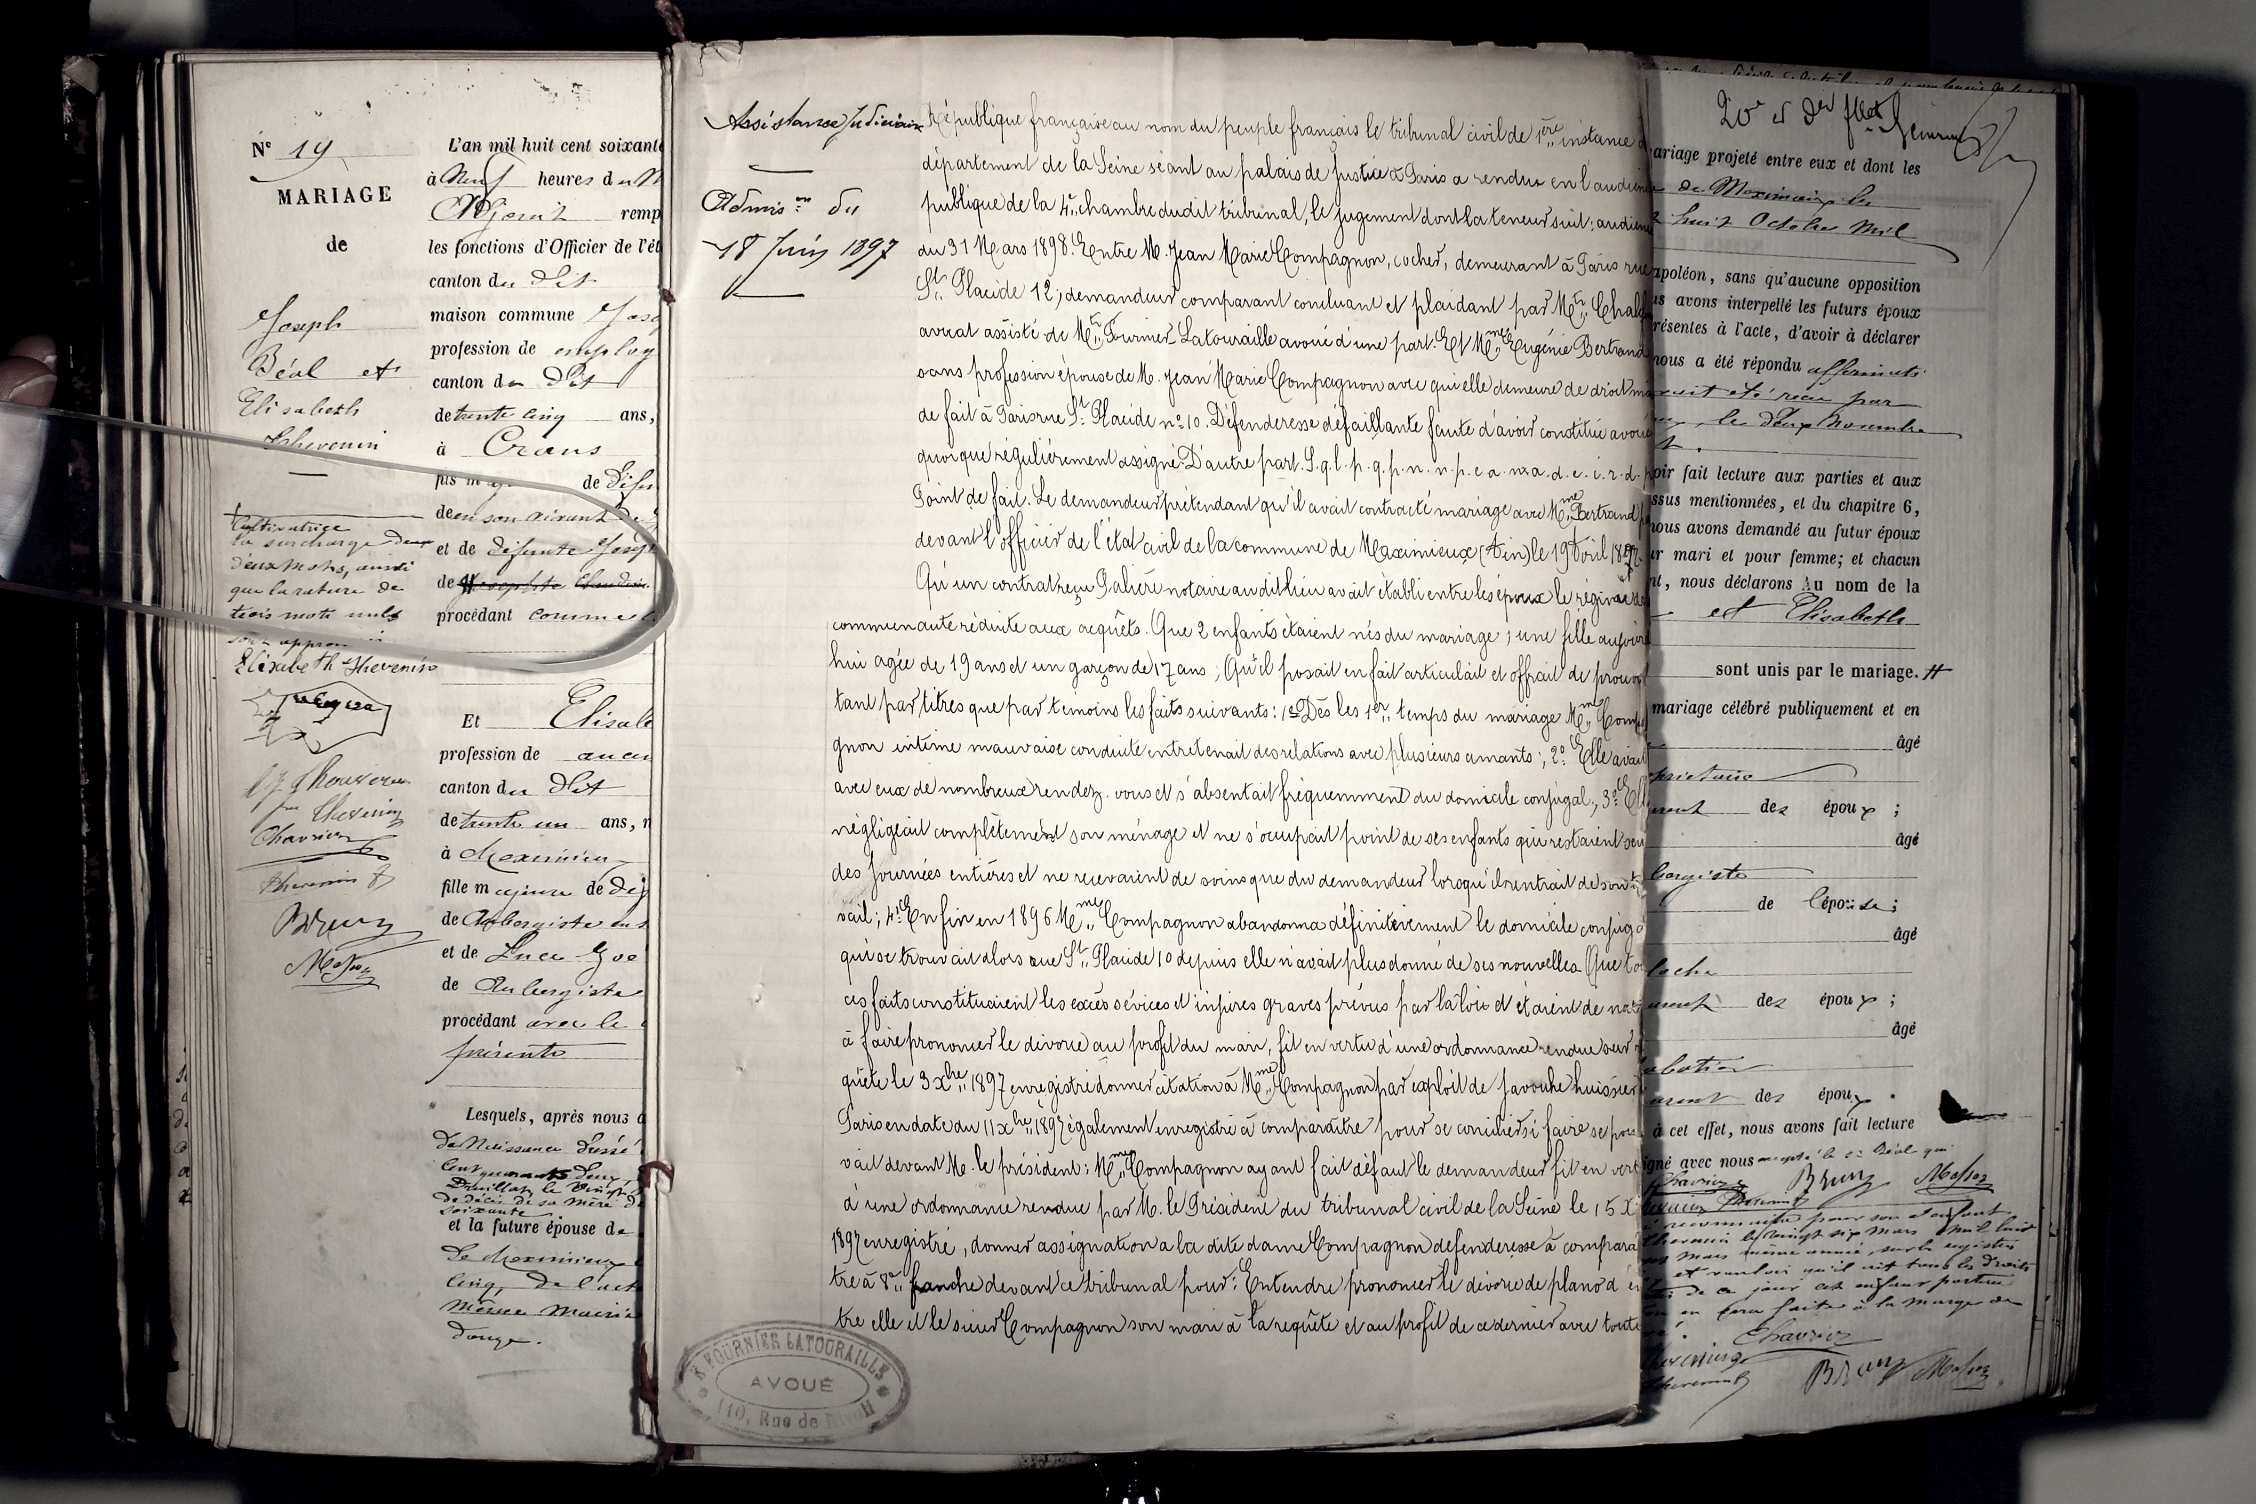 N° 19
MARIAGE
de
Joseph
Béal et
Elisabeth
Thevenin
Cultivatrice
la surcharge deux
deux mots, ainsi
que la rature de
trois mots nuls
Elisabeth Thevenin
Thevenin
Chavrier
Thevenin
Brun
L'an mil huit cent soixante
à Neuf heures du M
remp
les fonctions d'Officier de l'ét
canton du dit
maison commune Jose
profession de employ
canton du dit
de trente cinq ans,
à Crans
de Défu
de en son vivant
et de défunte Josep
de
procédant comme
Et Elisab
profession de aucu
canton du dit
de trente un ans, n
à Meximieux
fille majeure de
de Aubergiste
et de Luce
de Aubergiste
procédant avec le
présente
Lesquels, après nous
de Naissance Dressé
Cent quarante Deux
Druillat, le vingt
de décès de sa mère
soixante
et la future épouse de
de Meximieux
Cinq, De l'acte
même Mairie
Douze.
Assistance Judiciaire
Admis.on du
18 Juin 1897
République française au nom du peuple français le tribunal civil de 1ère instance d
département de la Seine séant au palais de Justice à Paris a rendu en l'audience
publique de la 4e chambre dudit tribunal, le jugement dont la teneur suit: audience
du 31 Mars 1898. Entre M. Jean Marie Compagnon, cocher, demeurant à Paris rue
St Placide 12; demandeur comparant concluant et plaidant par Me
avocat assisté de Me Fournier Latouraille avoué d'une part. Et Mme Eugénie Bertrand
sans profession épouse de M. Jean Marie Compagnon avec qui elle demeure de droit m
de fait à Paris rue St Placide n° 10. Défenderesse défaillante faute d'avoir constitué avoué
quoique régulièrement assigné. D'autre part. S.q.l.p.q.p.n.n.p.c.a.m.a.d.e.i.r.d.
Point de fait. Le demandeur prétendant qu'il avait contracté mariage avec Mme Bertrand
devant l'officier de l'état civil de la commune de Maximieux (Ain) le 19 Avril
Qu'un contrat reçu Palière notaire audit lieu avait établi entre les époux le régime de
communauté réduite aux acquêts. Que 2 enfants étaient nés du mariage; une fille aujour
hui agée de 19 ans et un garçon de 17 ans; Qu'il posait en fait articulait et offrait de prouver
tant par titres que par temoins les faits suivants: 1° Dès les 1er temps du mariage Mme Compa
gnon intime mauvaise conduite entretenait des relations avec plusieurs amants; 2° Elle avait
avec eux de nombreux rendez-vous et s'absentait fréquemment du domicile conjugal; 3° Elle
négligeait complètement son ménage et ne s'occupait point de ses enfants qui restaient seu
des journées entières et ne recevaient de soins que du demandeur lorsqu'il rentrait de son t
vail; 4° Enfin en 1896 Mme Compagnon abandonna définitivement le domicile conjuga
qui se trouvait alors rue St Placide 10 depuis elle n'avait plus donné de ses nouvelles. Que to
ces faits constituaient les excès sévices et injures graves prévus par la loi et étaient de nat
à faire prononcer le divorce au profit du mari, fit en vertu d'une ordonnance rendue sur r
quête le 3 Xbre 1897 enregistré donner citation à Mme Compagnon par exploit de Javouhe huissier
Paris en date du 11 Xbre 1897 également enregistré à comparaître pour se concilier si faire se pou
vait devant M. le président; Mme Compagnon ayant fait défaut le demandeur fit en vert
d'une ordonnance rendue par M. le Président du tribunal civil de la Seine le 15 X
1897 enregistré, donner assignation a la dite dame Compagnon défenderesse à compara
tre à 8ne franche devant ce tribunal pour: Entendre prononcer le divorce de plano d'e
tre elle et le sieur Compagnon son mari à la requête et au profit de ce dernier avec toute
F. FOURNIER LATOURAILLE
AVOUÉ
110, Rue de Rivoli
20e et der flet
ariage projeté entre eux et dont les
de Meximieux les
huit Octobre Mil
apoléon, sans qu'aucune opposition
us avons interpellé les futurs époux
résentes à l'acte, d'avoir à déclarer
nous a été répondu affirmati
avait été reçu par
le deux Novembre
oir fait lecture aux parties et aux
ssus mentionnées, et du chapitre 6,
nous avons demandé au futur époux
r mari et pour femme; et chacun
nt, nous déclarons Au nom de la
et Elisabeth
sont unis par le mariage.
mariage célébré publiquement et en
âgé
priétaire
des époux;
âgé
bergiste
de l'épouse;
âgé
des époux;
âgé
des époux.
à cet effet, nous avons fait lecture
igné avec nous excepté le sr Béal qui
Chavrier Brun
Thevenin
reconnaitre pour son enfant
Thevenin le vingt six mars mil huit
mars même année, sur le registre
et vouloir qu'il ait tous les droits
de ce jour cet enfant portera
en sera faite à la marge de
Chavrier
Thevenin Brun